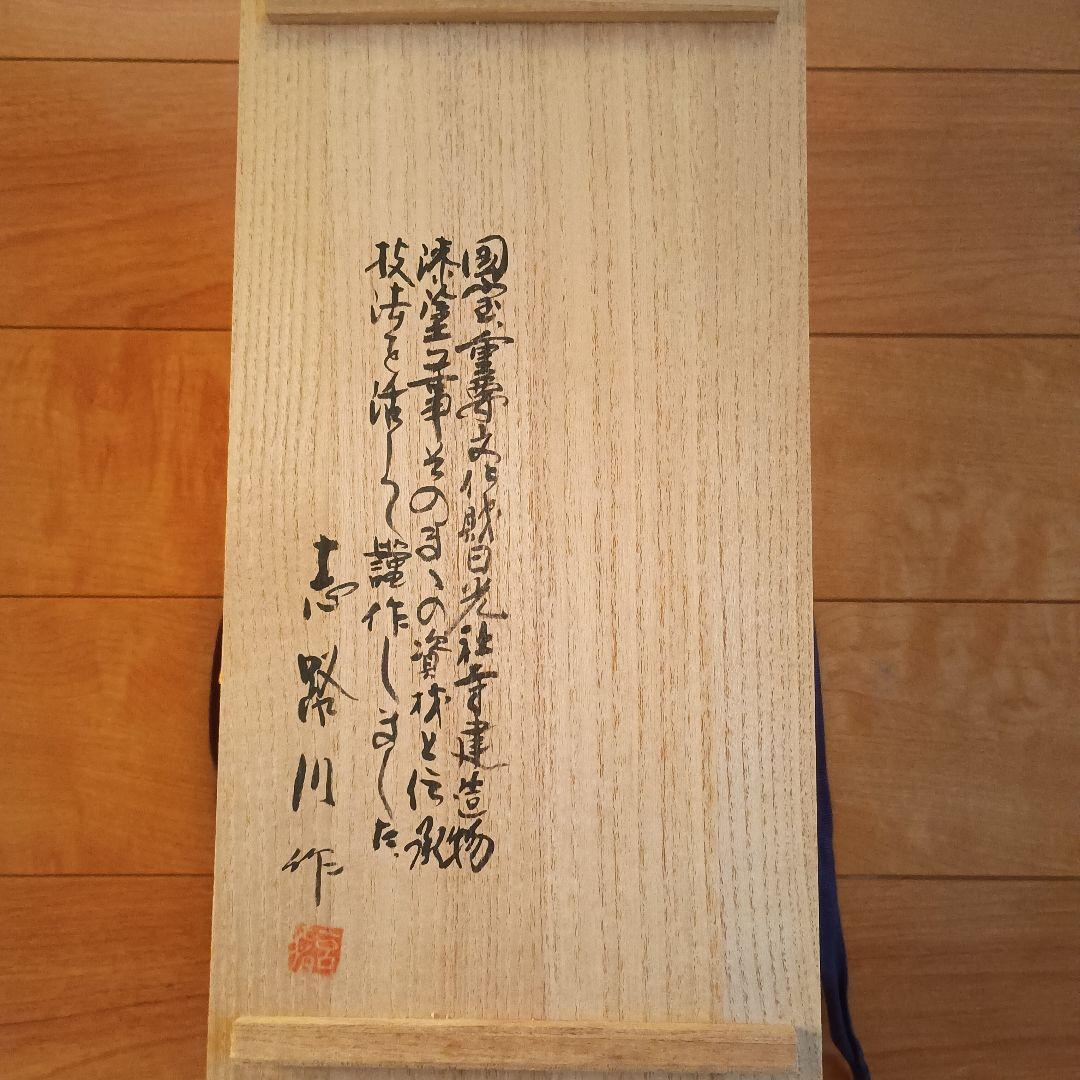 国宝、重要文化財日光社寺建造物
漆塗工事そのまゝの資材と伝承
技法を活しく謹作しました
志路川作